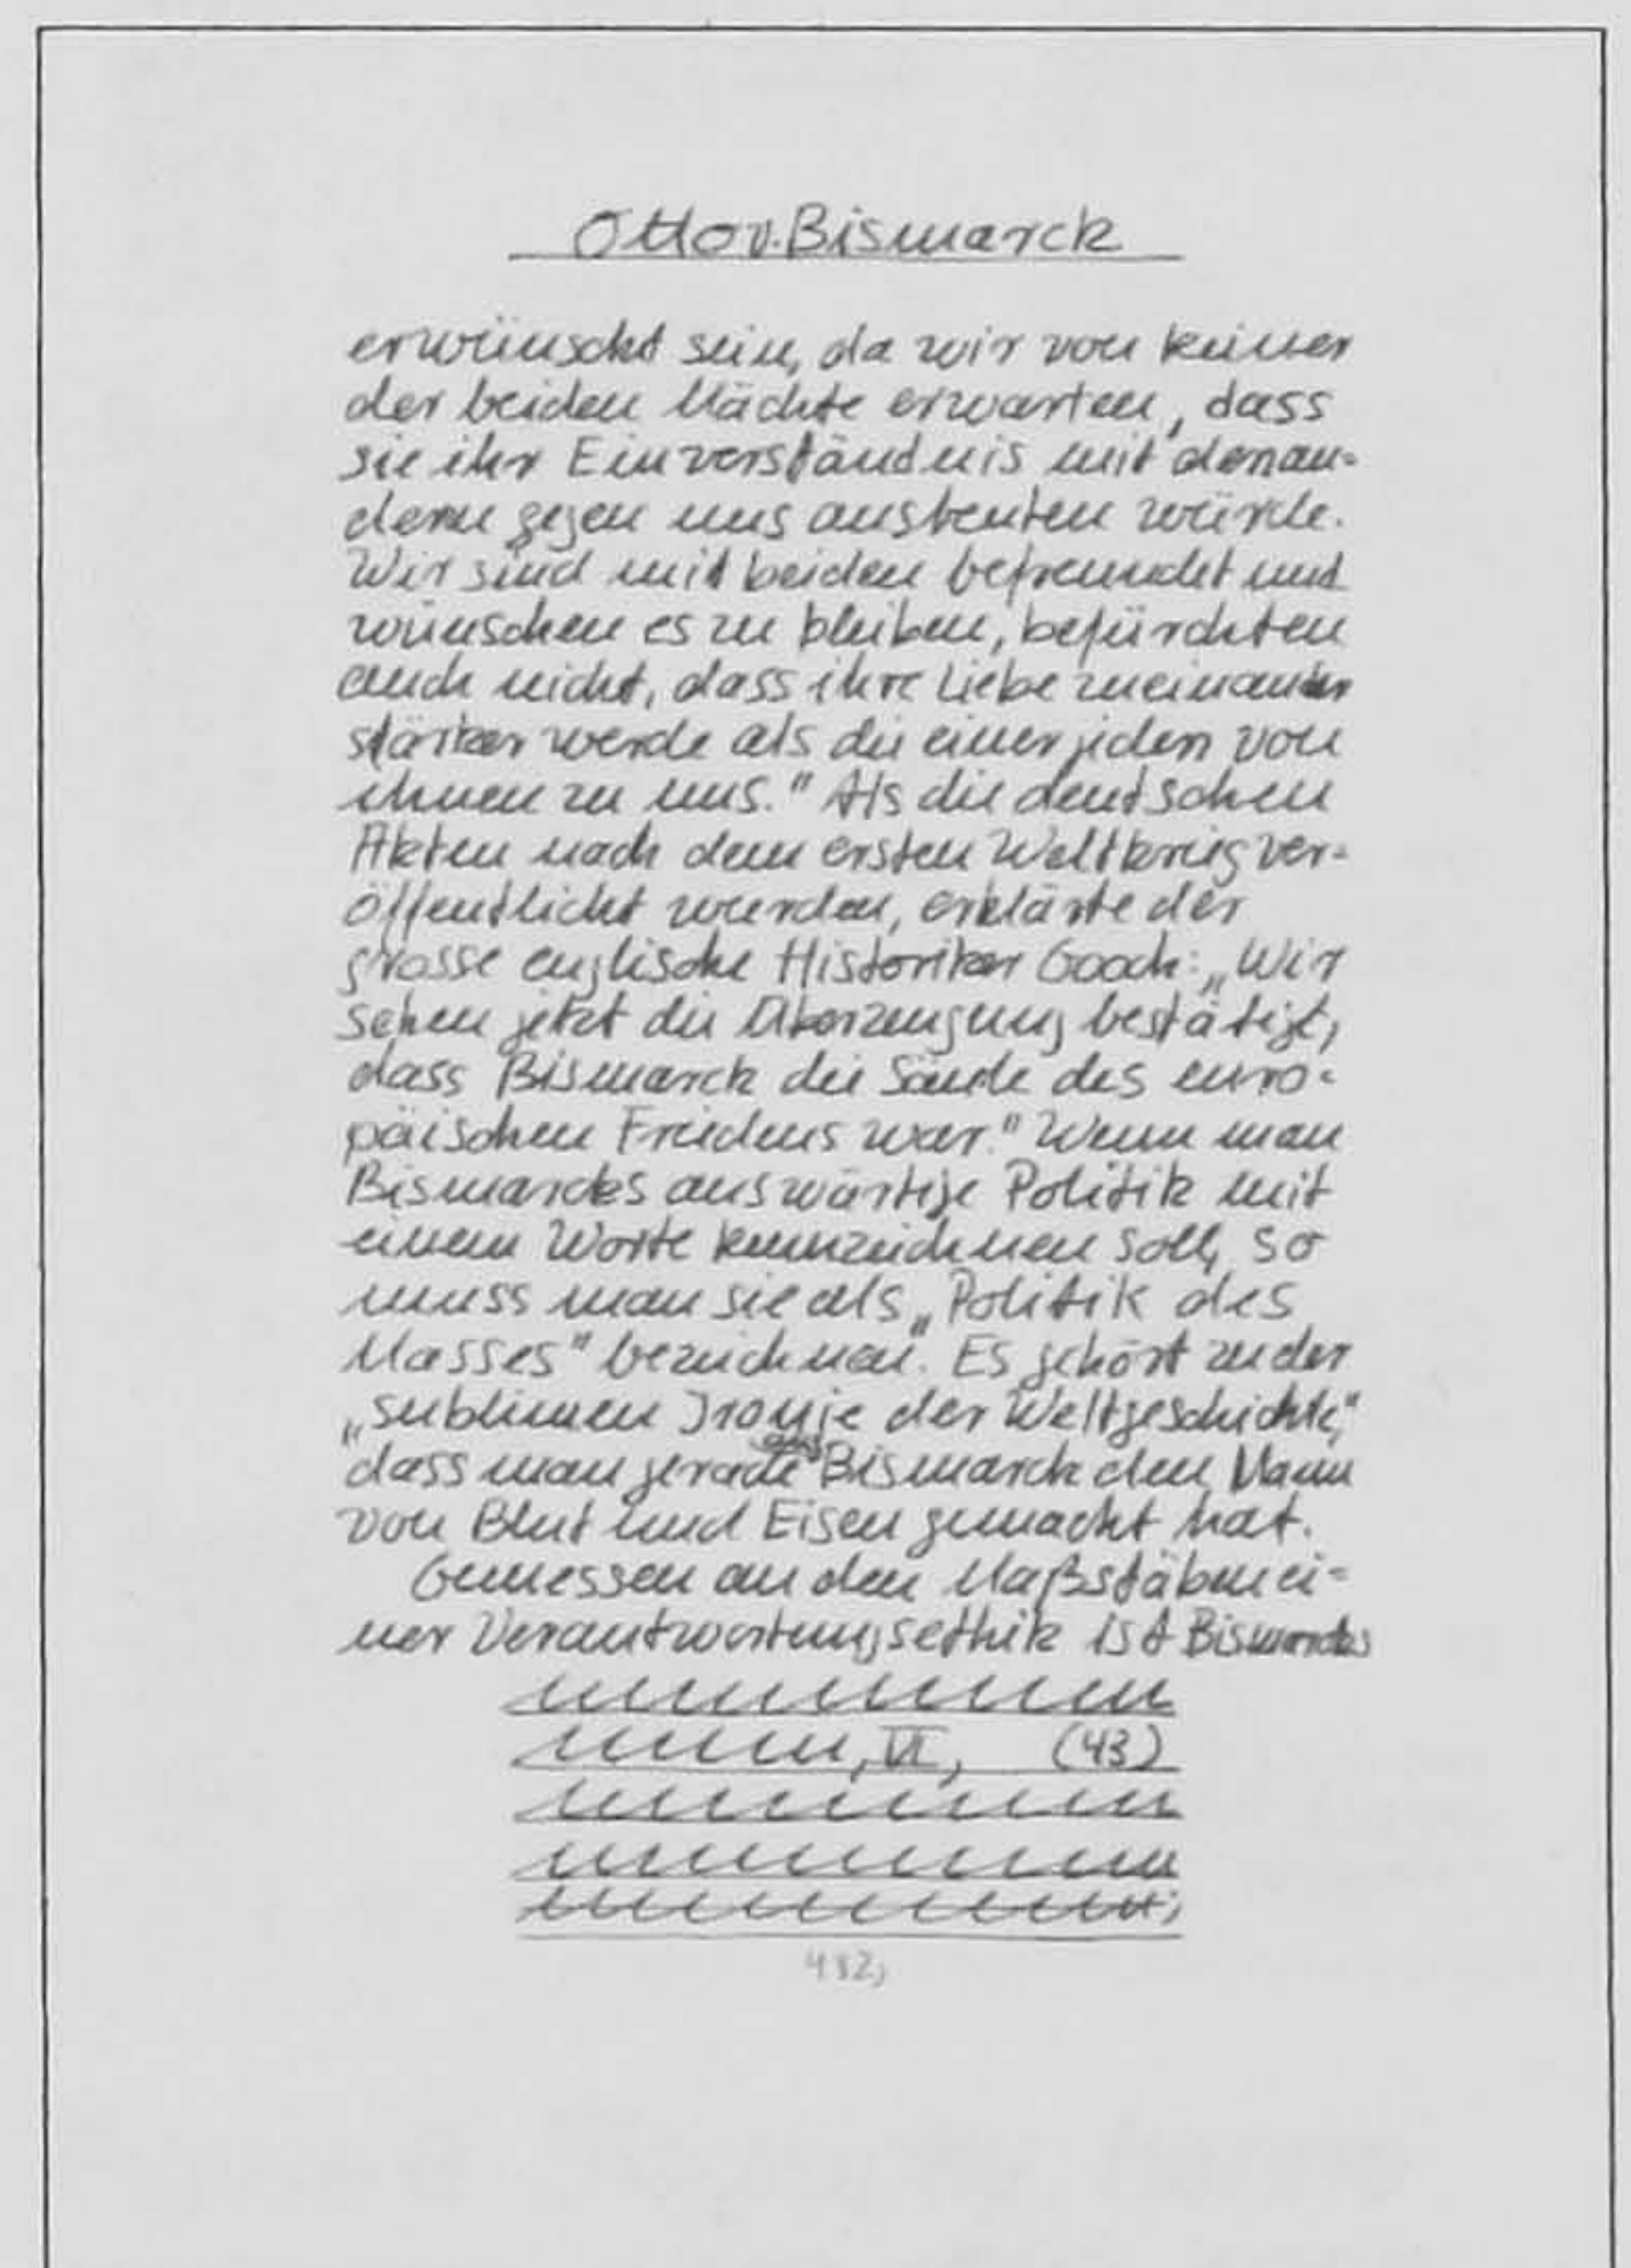 Otto v. Bismarck
erwünscht sein, da wir von keiner
der beiden Mächte erwarten, dass
sie ihr Einverständnis mit der an-
deren gegen uns ausbeuten würde.
Wir sind mit beiden befreundet und
wünschen es zu bleiben, befürchten
auch nicht, dass ihre Liebe zueinander
stärker werde als die einer jeden von
ihnen zu uns." Als die deutschen
Akten nach dem ersten Weltkrieg ver-
öffentlicht wurden, erklärte der
grosse englische Historiker Gooch: „Wir
sehen jetzt die Überzeugung bestätigt,
dass Bismarck die Säule des euro-
päischen Friedens war." Wenn man
Bismarcks auswärtige Politik mit
einem Worte kennzeichnen soll, so
muss man sie als „Politik des
Masses" bezeichnen. Es gehört zu der
„sublimen Ironie der Weltgeschichte,"
dass man gerade aus Bismarck den Mann
von Blut und Eisen gemacht hat.
Gemessen an den Maßstäben ei-
ner Verantwortungsethik ist Bismarcks
VI, (43)
482)